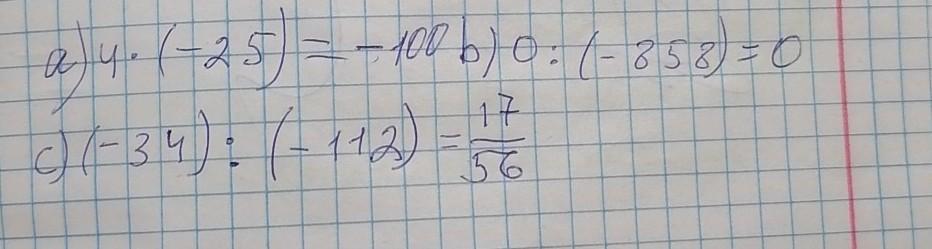 a) 4 · (-25) = -100 b) 0 : (-858) = 0
c) (-34) : (-112) = 17/56